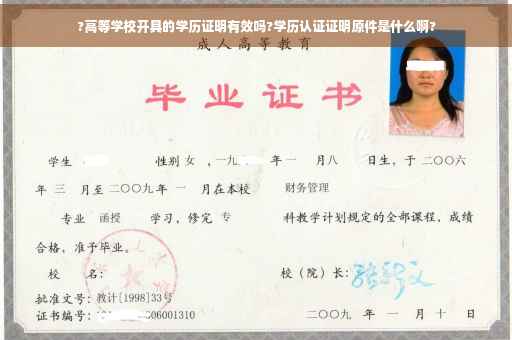 ?高等学校开具的学历证明有效吗?学历认证证明原件是什么啊?
成人高等教育
毕业证书
学生 性别 女 ，一九 年 一 月 八 日生，于 二〇〇六
年 三 月至 二〇〇九 年 一 月在本校 财务管理
专业 函授 学习，修完 专 科教学计划规定的全部课程，成绩
合格，准予毕业。
校 名： 校（院）长：
批准文号：教计[1998]33号
证书编号： 06001310 二〇〇九 年 一 月 十 日